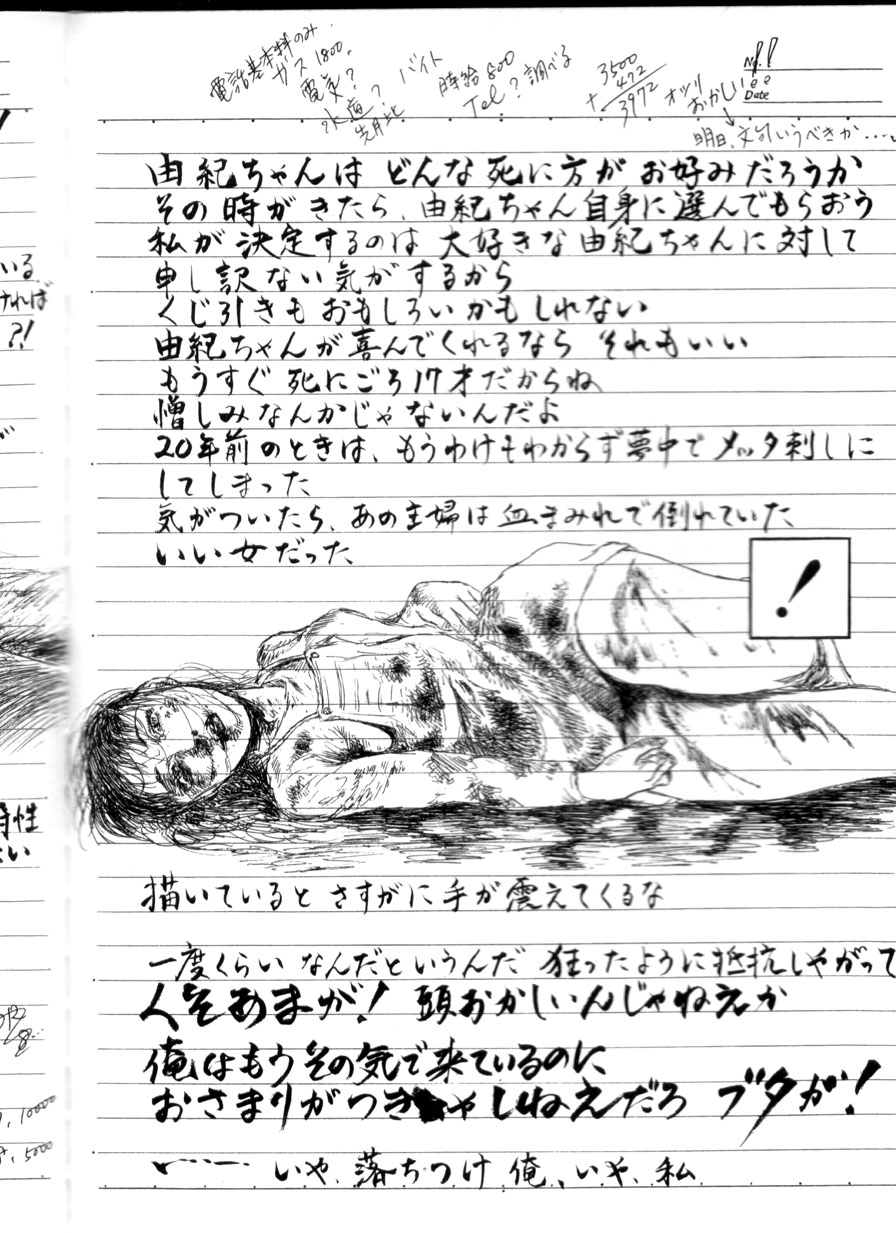 電話基本料のみ
ガス 1800.
電気?
水道?
先月比
バイト
時給 800
Tel? 調べる
3500
472
+
3972
オツリ
おかしい
明日、文句いうべきか・・・・
No.
!!
Date
由紀ちゃんは どんな死に方が お好みだろうか
その時がきたら、由紀ちゃん自身に選んでもらおう
私が決定するのは 大好きな由紀ちゃんに対して
申し訳ない気がするから
くじ引きもおもしろいかもしれない
由紀ちゃんが喜んでくれるなら それもいい
もうすぐ 死にごろ17才だからね
憎しみなんかじゃないんだよ
20年前のときは、もうわけもわからず夢中でメッタ刺しに
してしまった
気がついたら、あの主婦は血まみれで倒れていた
いい女だった
!
描いていると さすがに手が震えてくるな
一度くらい なんだというんだ 狂ったように抵抗しやがって
人そあまが! 頭おかしいんじゃねえか
俺はもうその気で来ているのに
おさまりがつきゃしねえだろ ブタが!
いや、落ちつけ 俺、いや、私
いる
ければ
?!
特性
10000
5000